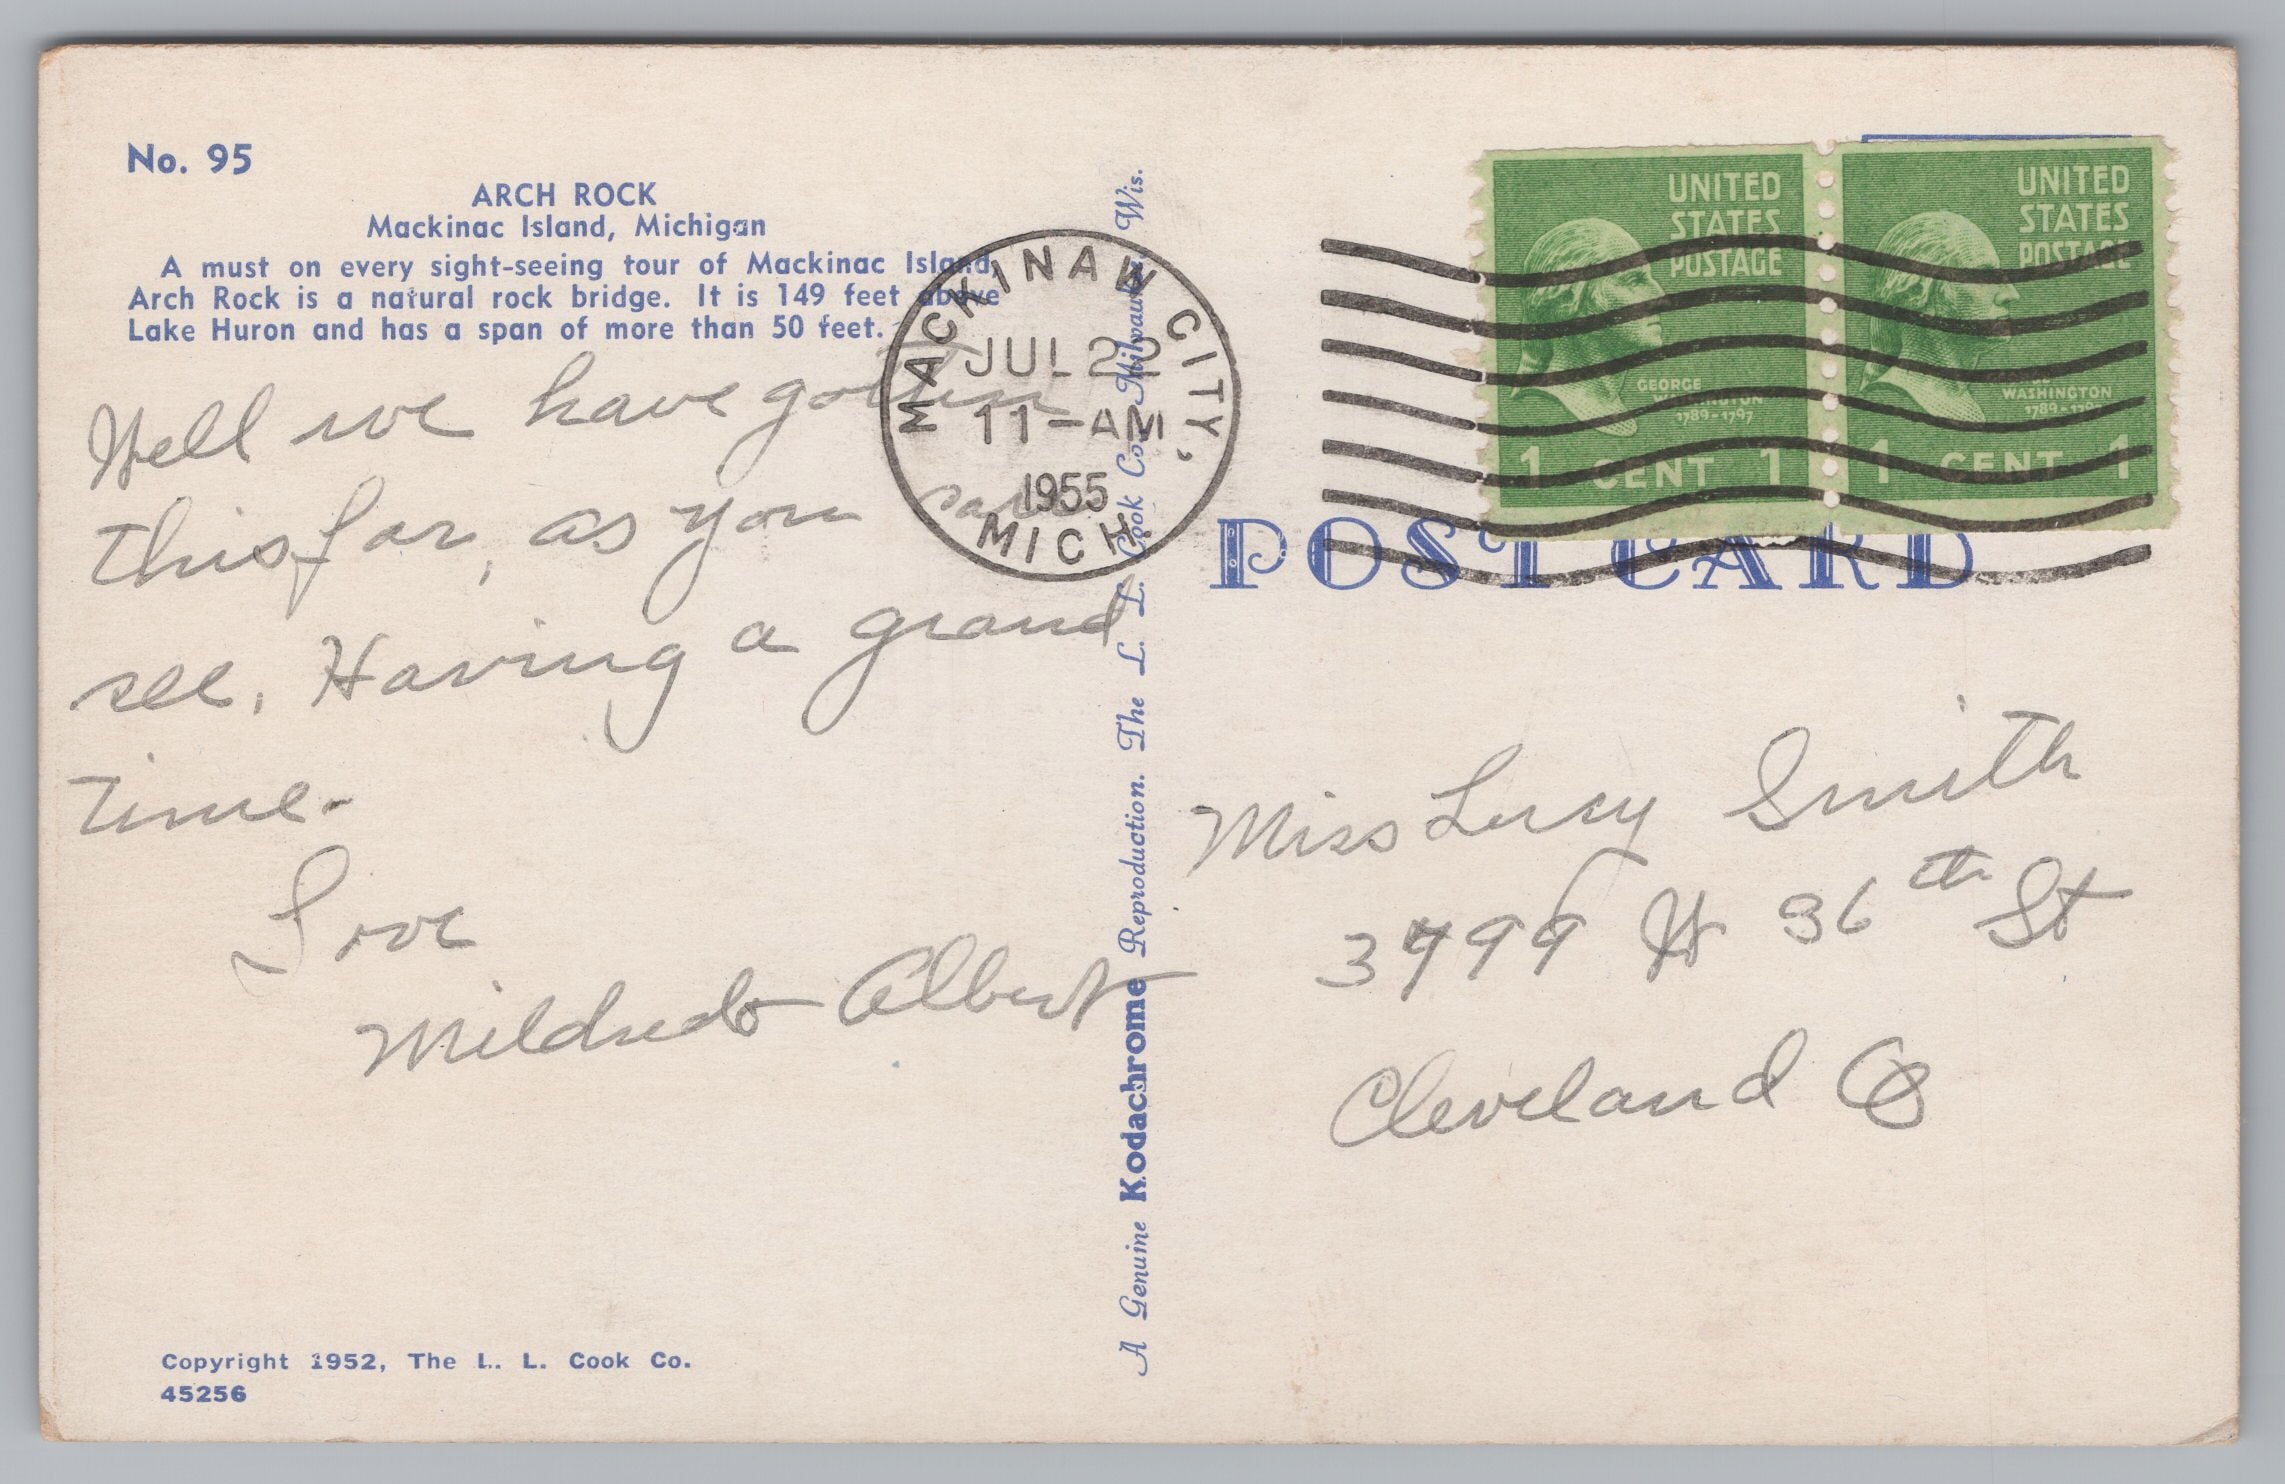 No. 95
ARCH ROCK
Mackinac Island, Michigan
A must on every sight-seeing tour of Mackinac Island,
Arch Rock is a natural rock bridge. It is 149 feet above
Lake Huron and has a span of more than 50 feet.
Well we have gotten
this far, as you can
see. Having a grand
time.
Love
Mildred Albert
Copyright 1952, The L. L. Cook Co.
45256
A Genuine Kodachrome Reproduction. The L. L. Cook Co., Milwaukee, Wis.
MACKINAW CITY,
JUL 22
11-AM
1955
MICH.
UNITED
STATES
POSTAGE
GEORGE
WASHINGTON
1789-1797
1 CENT 1
UNITED
STATES
POSTAGE
WASHINGTON
1789-1797
1 CENT 1
POST CARD
Miss Lucy Smith
3799 W 36th St
Cleveland O